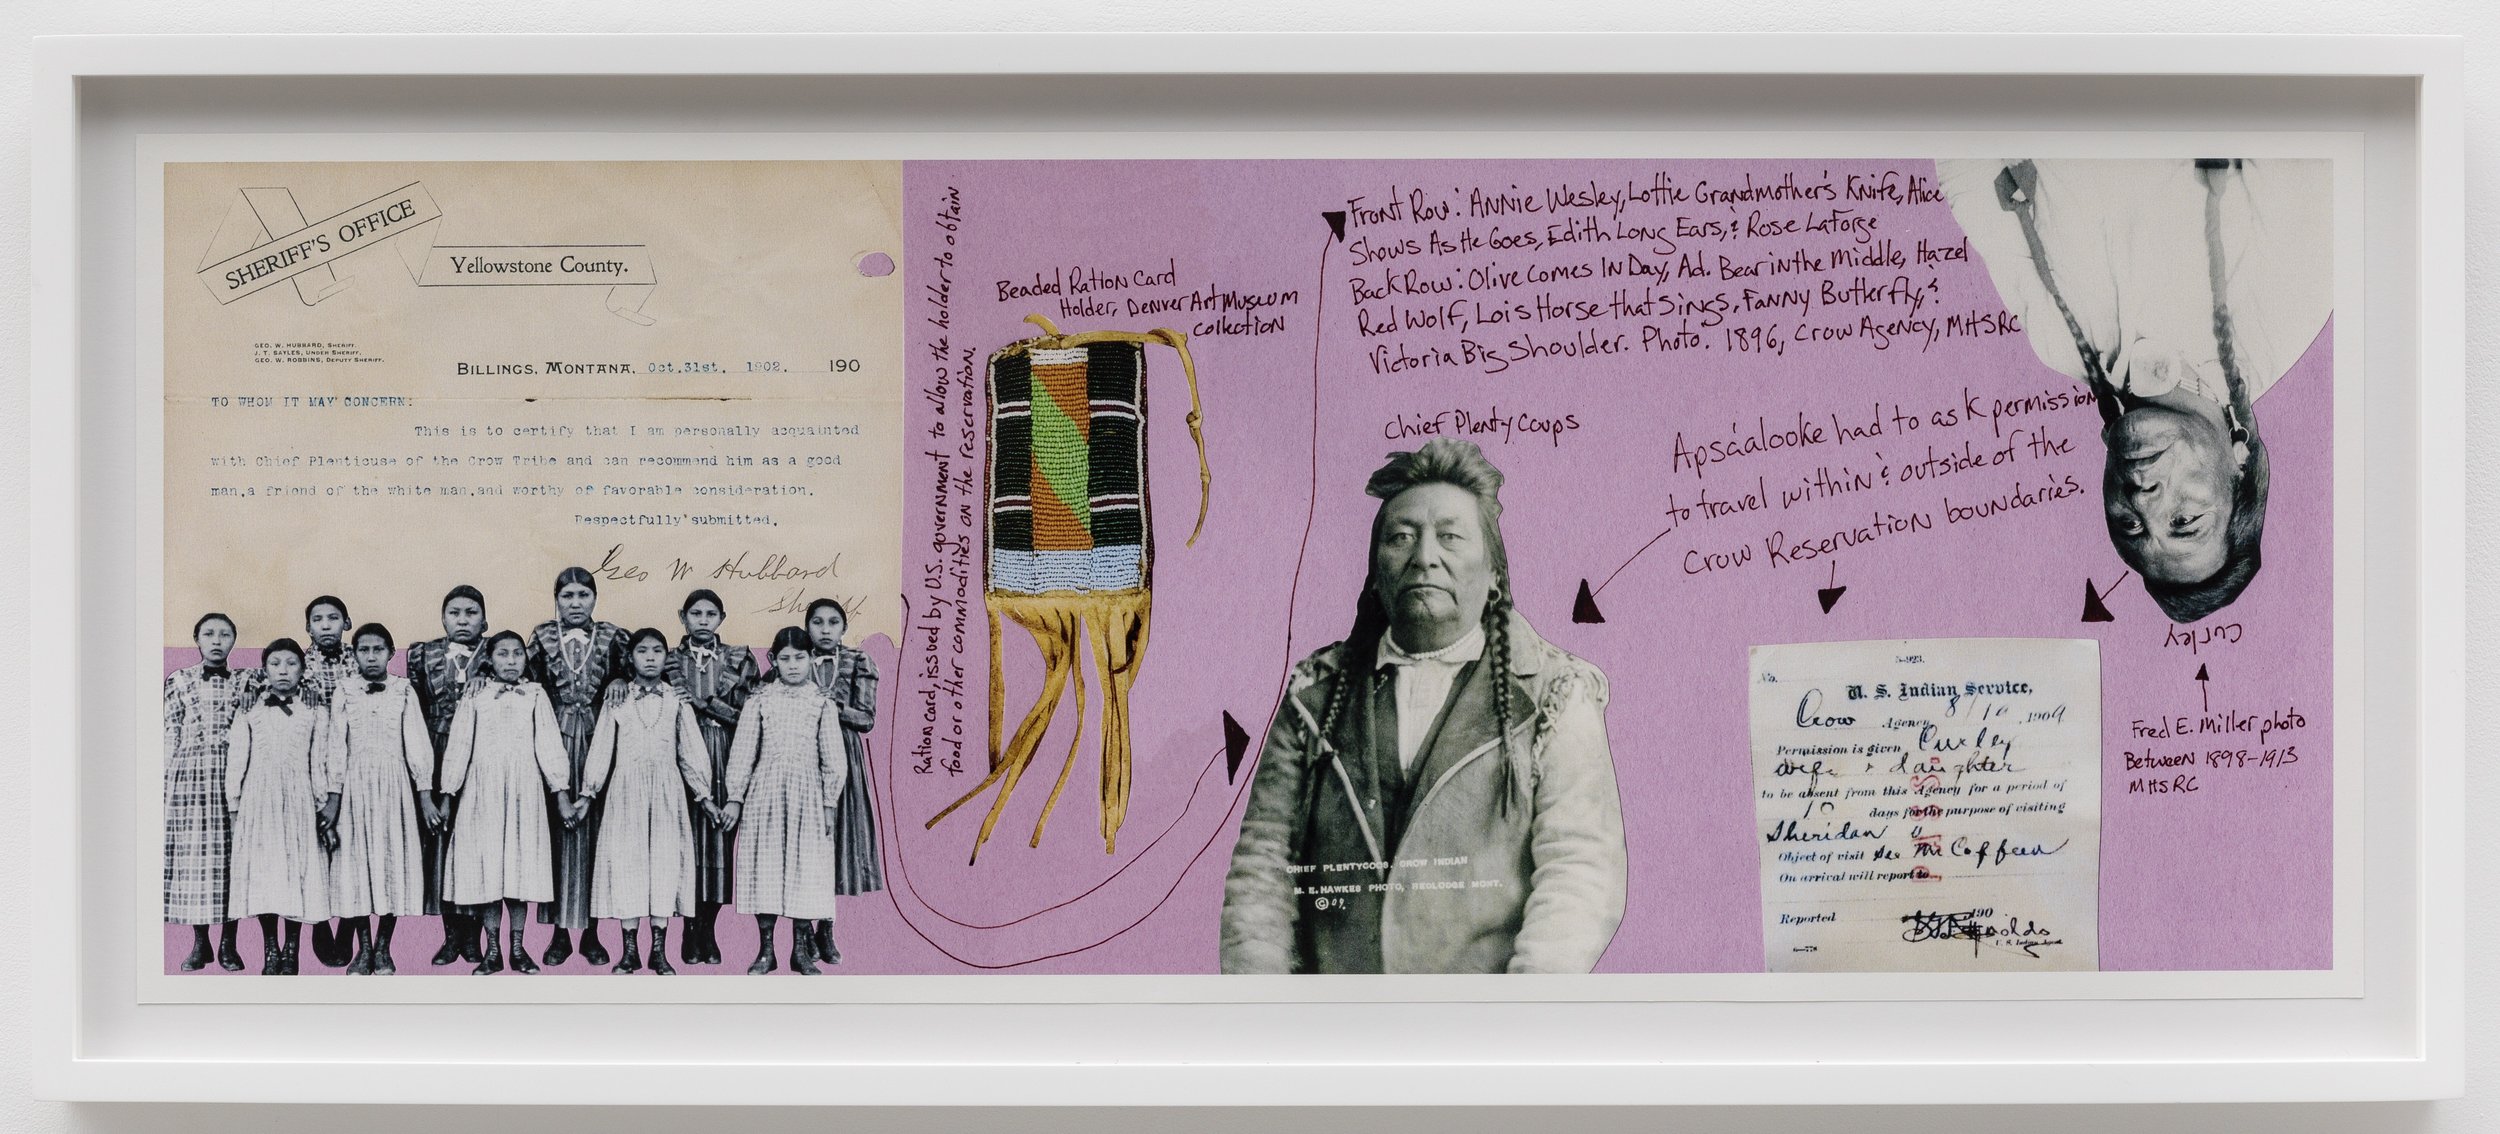 SHERIFF'S OFFICE
Yellowstone County.
GEO. W. HUBBARD, SHERIFF.
J. T. SAYLES, UNDER SHERIFF.
GEO. W. ROBBINS, DEPUTY SHERIFF.
BILLINGS, MONTANA, Oct.31st, 1902. 190
TO WHOM IT MAY CONCERN:
This is to certify that I am personally acquainted
with Chief Plenticuse of the Crow Tribe and can recommend him as a good
man,a friend of the white man,and worthy of favorable consideration.
Respectfully submitted,
Geo W Hubbard
Sheriff
Ration card, issued by U.S. government to allow the holder to obtain
food or other commodities on the reservation.
Beaded Ration Card
Holder, Denver Art Museum
collection
Front Row: Annie Wesley, Lottie Grandmother's Knife, Alice
Shows As He Goes, Edith Long Ears, & Rose LaForge
Back Row: Olive Comes In Day, Ad. Bear in the Middle, Hazel
Red Wolf, Lois Horse that Sings, Fanny Butterfly, &
Victoria Big Shoulder. Photo. 1896, Crow Agency, MHSRC
Chief Plenty Coups
CHIEF PLENTYCOOS, CROW INDIAN
M. E. HAWKES PHOTO, REDLODGE MONT.
© 09.
Apsáalooke had to ask permission
to travel within & outside of the
Crow Reservation boundaries.
5-923.
No.
U. S. Indian Service,
Crow Agency 8/10, 1909
Permission is given Curley
wife & daughter
to be absent from this Agency for a period of
10 days for the purpose of visiting
Sheridan
Object of visit See Mr Coffeen
On arrival will report to
Reported 190
U. S. Indian Agent
Curley
Fred E. Miller photo
Between 1898-1913
MHSRC